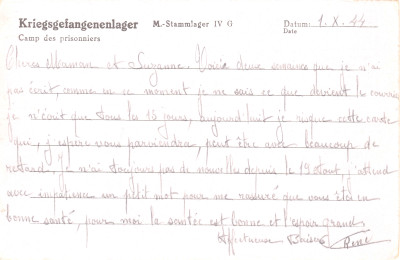 Kriegsgefangenenlager M.-Stammlager IV G Datum: 1.X.44
Camp des prisonniers Date
Chères Maman et Suzanne. Voici deux semaines que je n'ai
pas écrit, comme en ce moment je ne sais ce que devient le courrier
je n'écrit que tous les 15 jours, aujourd'huit je risque cette carte
qui, j'espère vous parviendra, peut être avec beaucoup de
retard. Je n'ai toujours pas de nouvelles depuis le 19 Aout, j'attend
avec impatience un petit mot pour me rassuré que vous êtes en
bonne santé, pour moi la santée est bonne et l'espoir grand.
Affectueux Baisers René